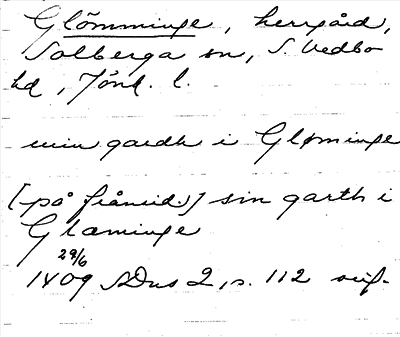 Glömminge, herrgård,
Solberga sn, S. Vedbo
hd, Jönk. l.
min gardh i Gløminge
[på frånsid.] sin garth i
Glæminge
29/6
1409 SDns 2, s. 112 orig.